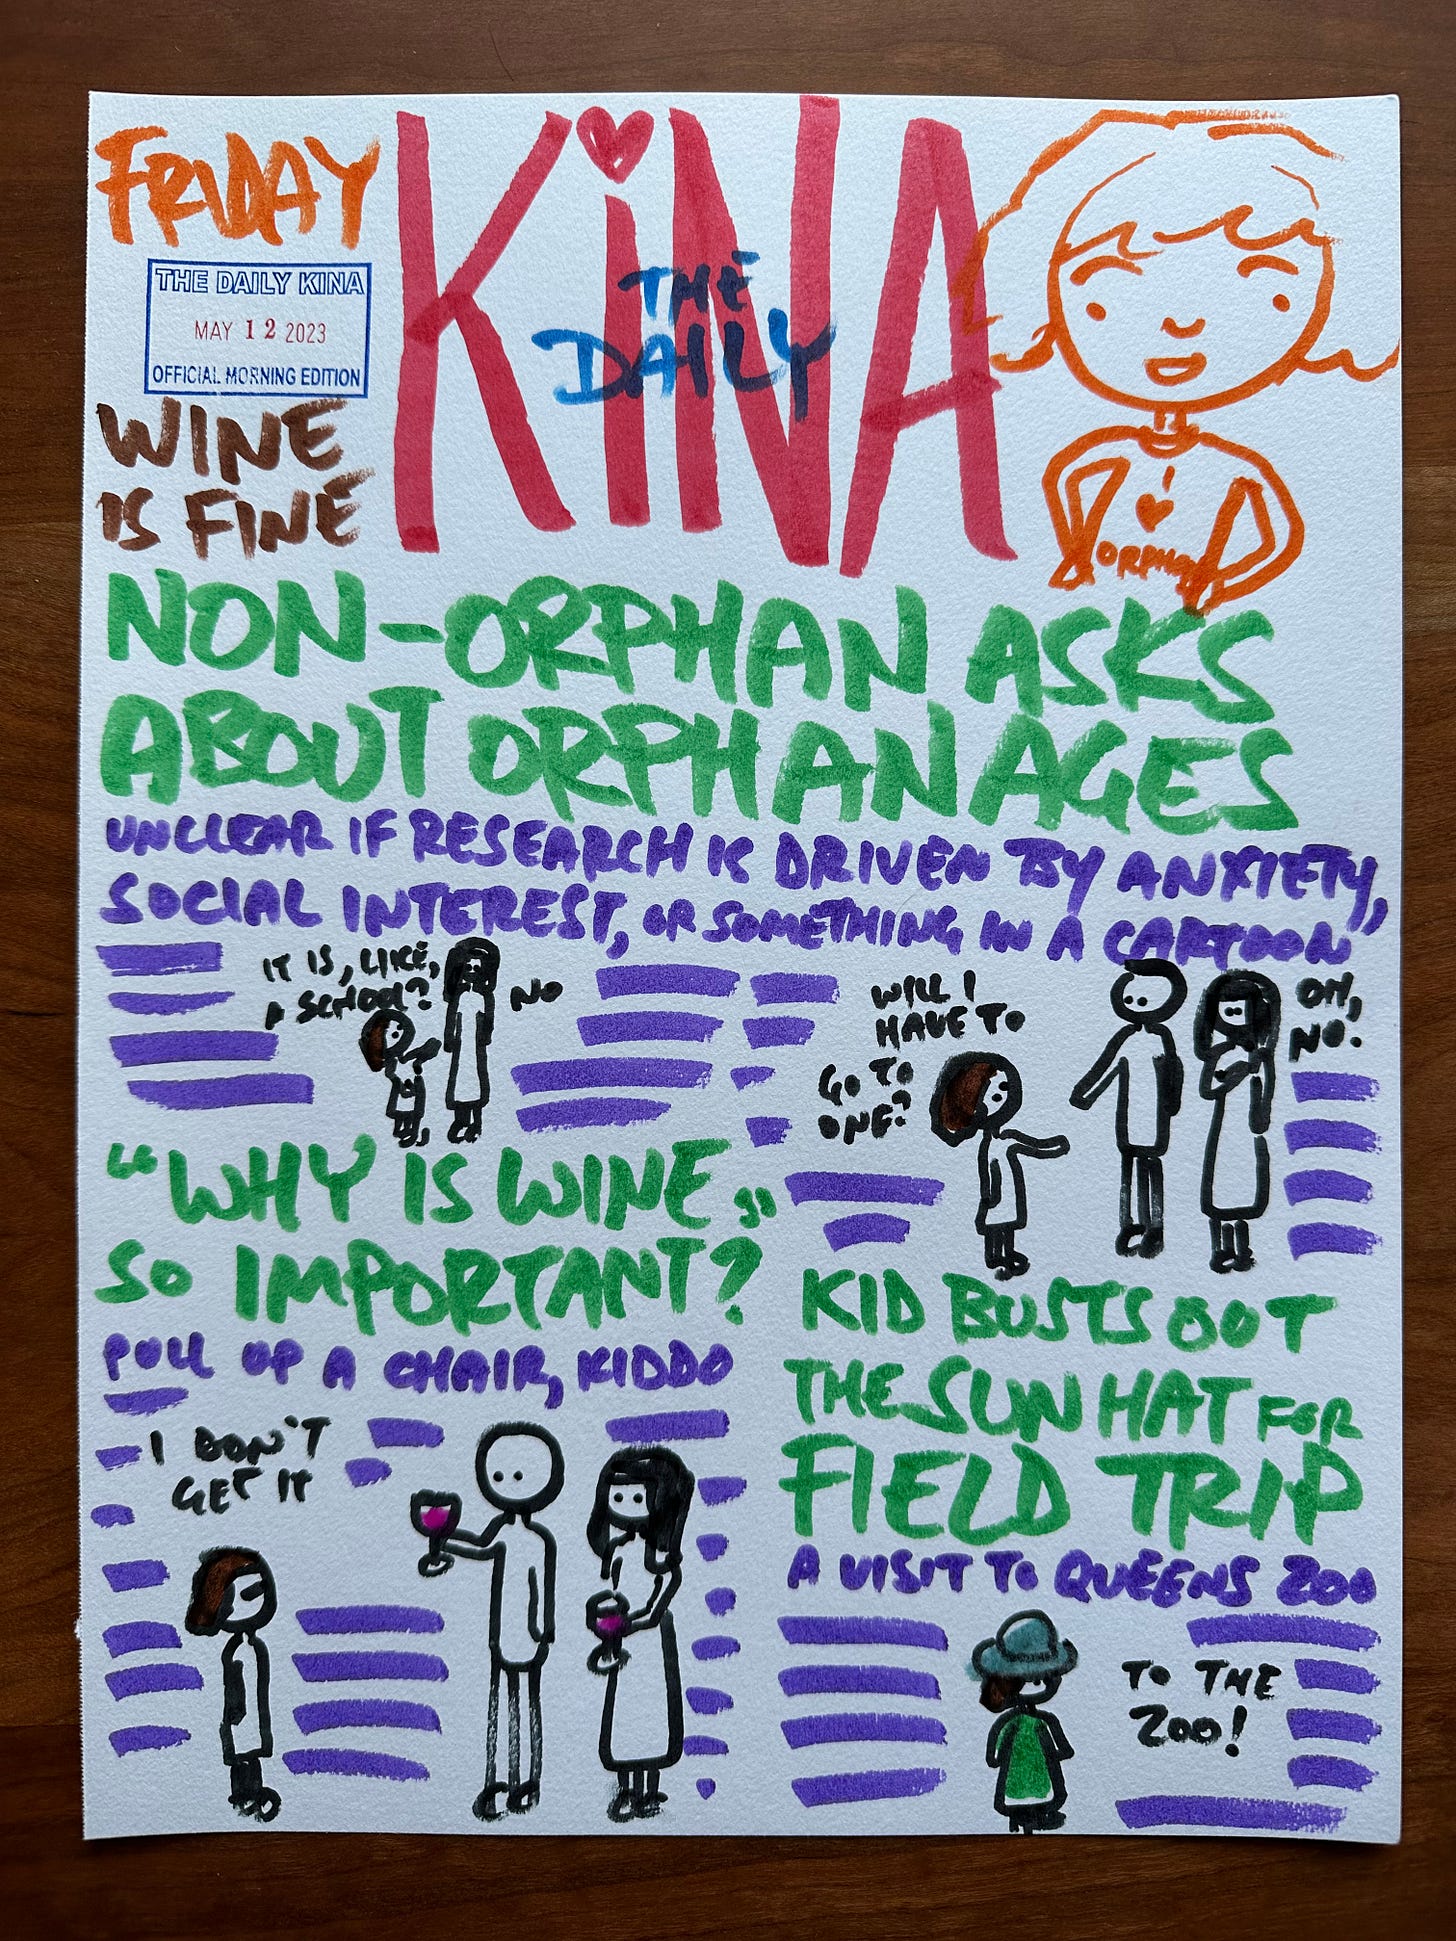 FRIDAY
THE DAILY KINA
MAY 12 2023
OFFICIAL MORNING EDITION
WINE
IS FINE
KiNA
THE
DAILY
I
ORPHAN
NON-ORPHAN ASKS
ABOUT ORPHANAGES
UNCLEAR IF RESEARCH IS DRIVEN BY ANXIETY,
SOCIAL INTEREST, OR SOMETHING IN A CARTOON
IT IS, LIKE,
A SCHOOL?
NO
WILL I
HAVE TO
GO TO
ONE?
OH,
NO.
"WHY IS WINE"
SO IMPORTANT?
PULL UP A CHAIR, KIDDO
I DON'T
GET IT
KID BUSTS OUT
THE SUN HAT FOR
FIELD TRIP
A VISIT TO QUEENS ZOO
TO THE
ZOO!